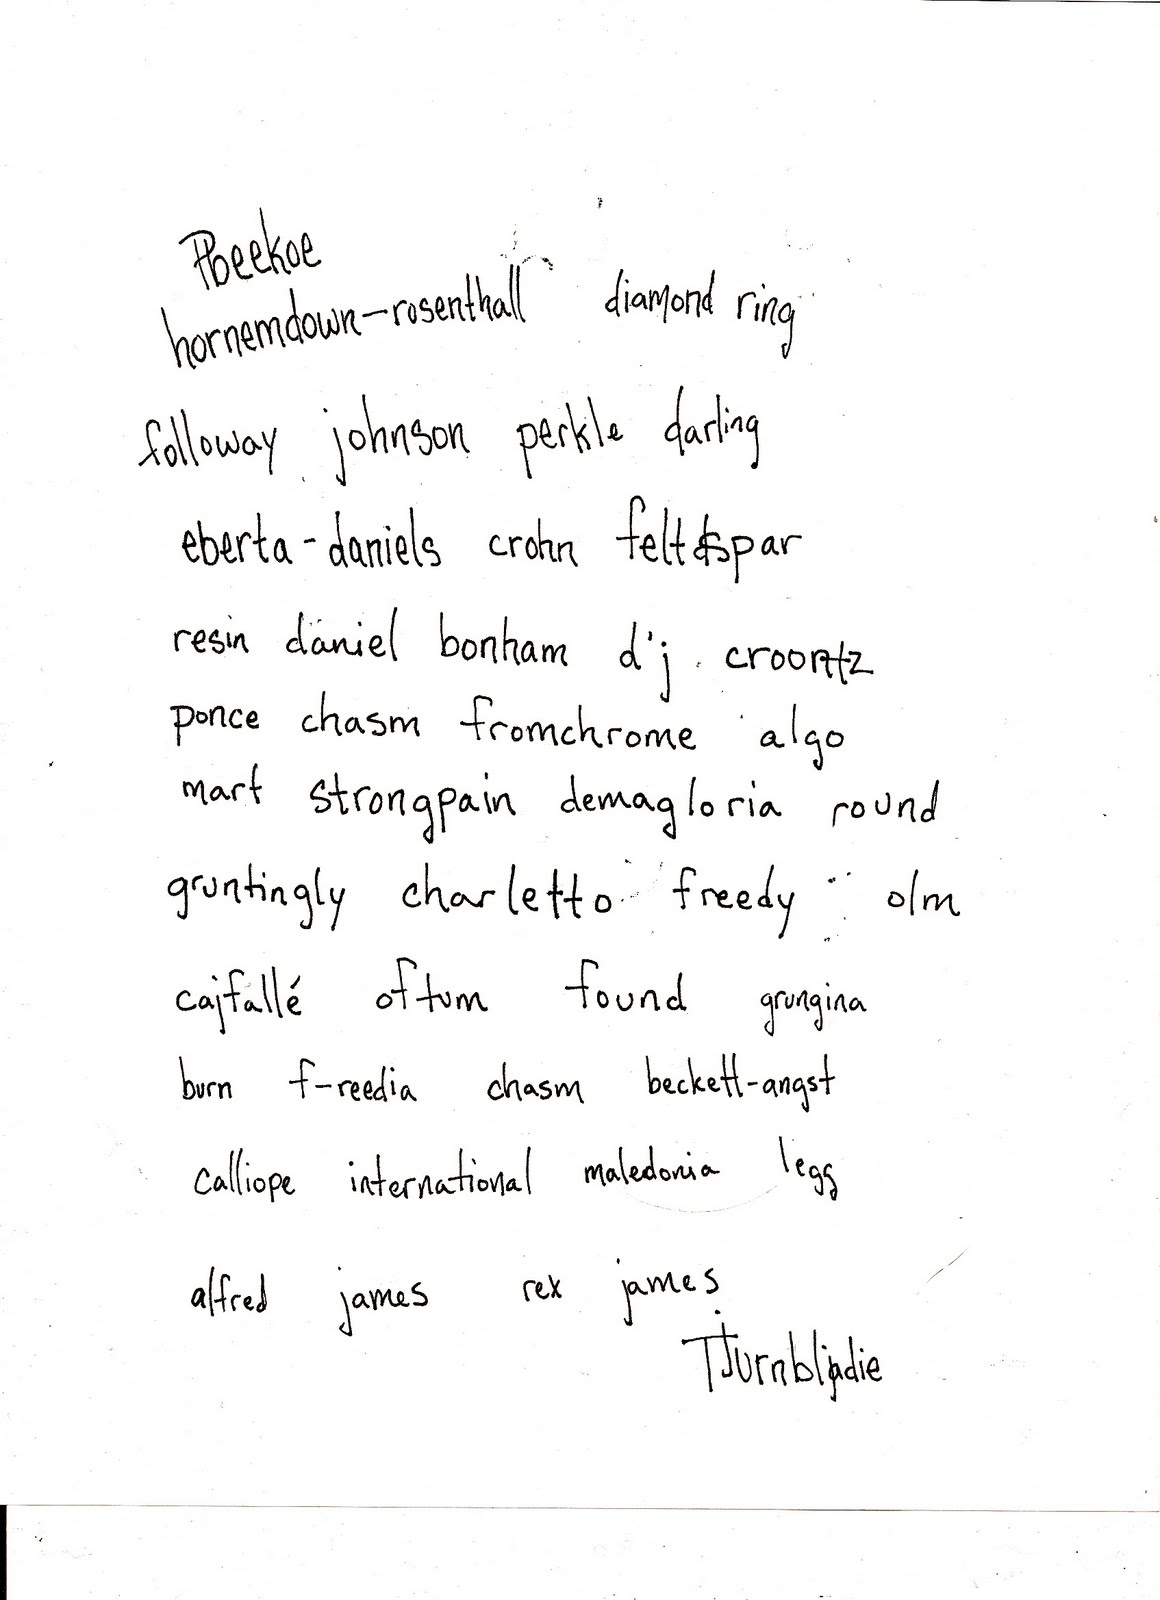 Pbeekoe
hornemdown-rosenthall diamond ring
followay johnson perkle darling
eberta-daniels crohn feltdspar
resin däniel bonham d'j croontz
ponce chasm fromchrome algo
mart strongpain demagloria round
gruntingly charletto freedy olm
cajfallé oftum found grungina
burn f-reedia chasm beckett-angst
calliope international maledonia legg
alfred james rex james
Tjurnbljadie